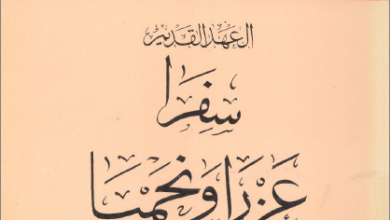 العهد القديم
سِفرَا
عَزرَا وَنَحَميَا